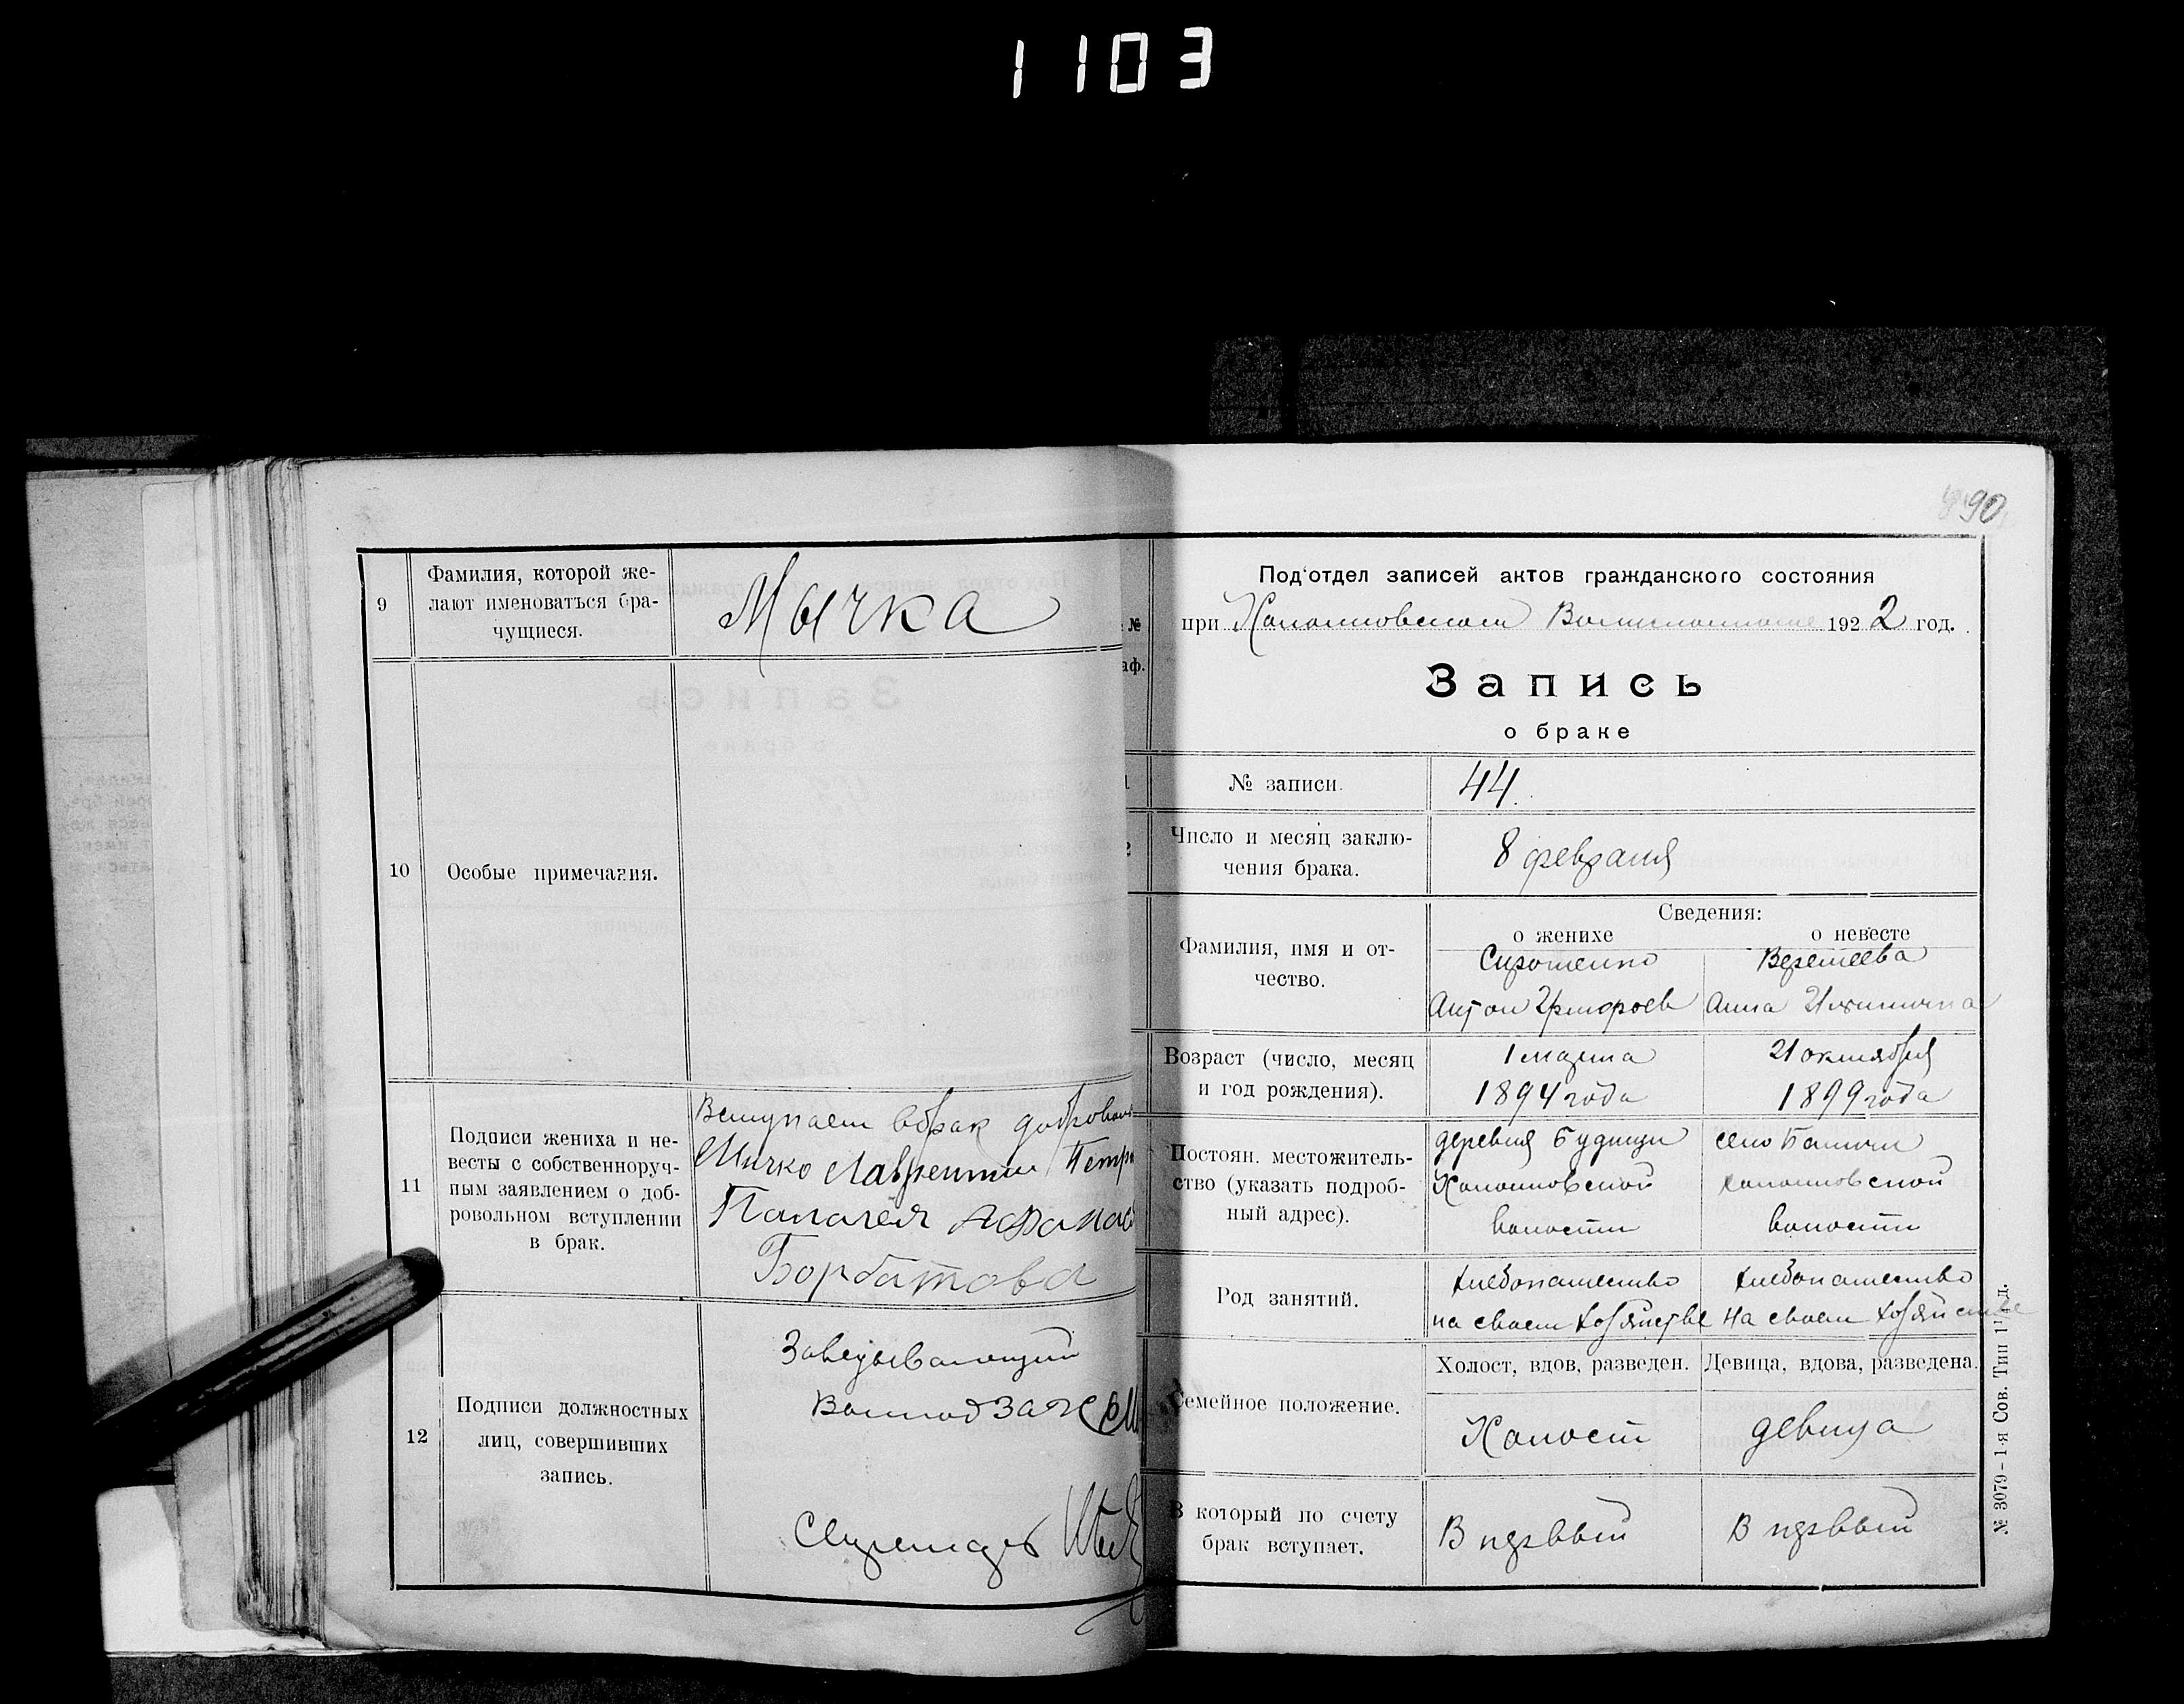 1103
90
9
Фамилия, которой же-
лают именоваться бра-
чущиеся.
Мычка
10
Особые примечания.
11
Подписи жениха и не-
весты с собственноруч-
ным заявлением о доб-
ровольном вступлении
в брак.
Вступаем в брак добровольн
Мичко Лаврентий Петр
Палагея Афанас
Борбатова
12
Подписи должностных
лиц, совершивших
запись.
Заведывающий
Секретарь
№
аф.
Под'отдел записей актов гражданского состояния
при 1922 год.
Запись
о браке
1
№ записи.
44.
2
Число и месяц заклю-
чения брака.
8 февраля
Фамилия, имя и от-
чество.
Сведения:
о женихе
о невесте
Сиротенко
Веремеева
Антон Григорьев
Анна
Возраст (число, месяц
и год рождения).
1 марта
1894 года
21 октября
1899 года
Постоян. местожитель-
ство (указать подроб-
ный адрес).
деревня Будищи
волости
село
волости
Род занятий.
хлебопашество
на своем хозяйстве
хлебопашество
на своем хозяйстве
Семейное положение.
Холост, вдов, разведен.
Девица, вдова, разведена.
Холост
девица
В который по счету
брак вступает.
В первый
В первый
№ 3079-1-я Сов. Тип 1 д.